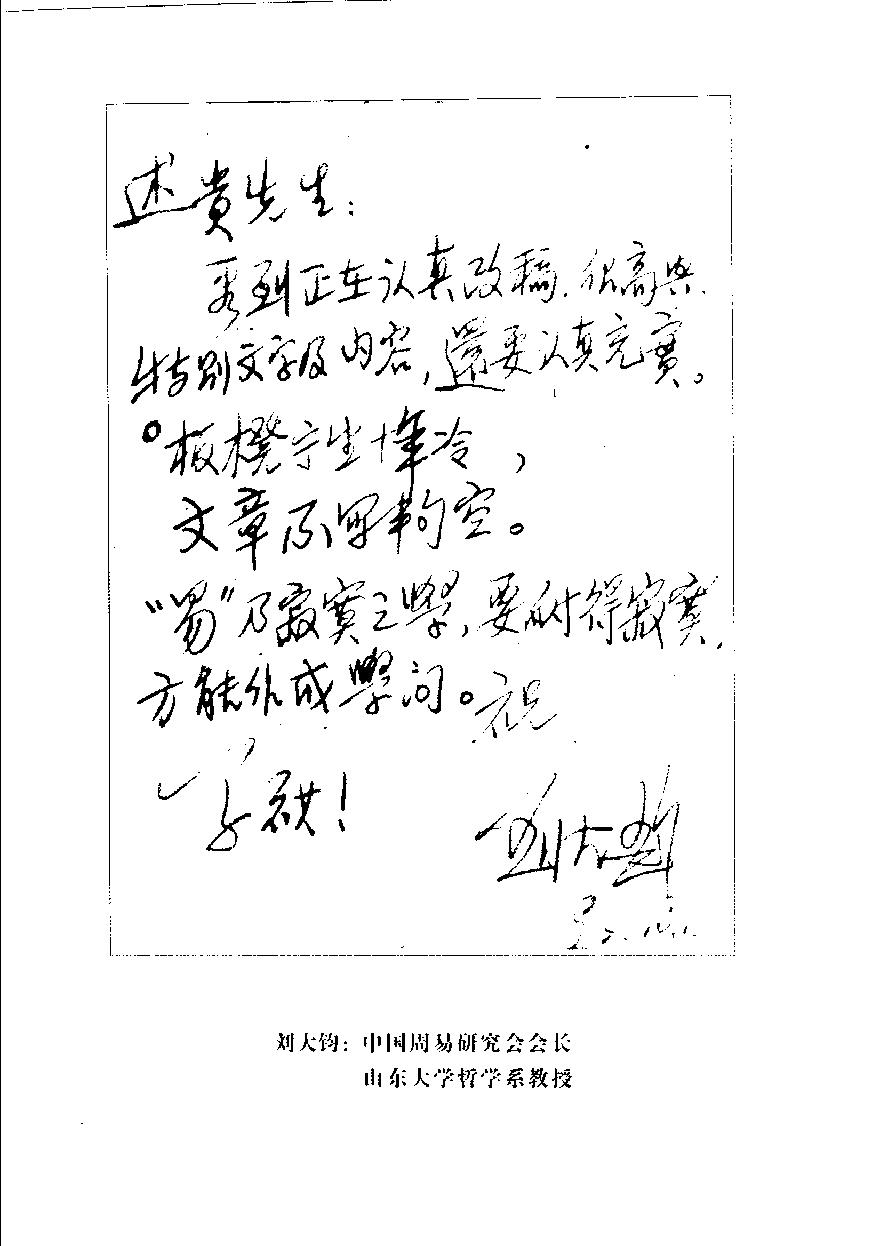 述貴先生:
看到正在认真改稿.很高兴.
特别文字及内容,還要认真充實。
板櫈宁坐十年冷,
文章不写半句空。
“易”乃寂寞之學,要耐得寂寞,
方能作成學问。祝
文祺!
刘大钧
刘大钧：中国周易研究会会长
山东大学哲学系教授